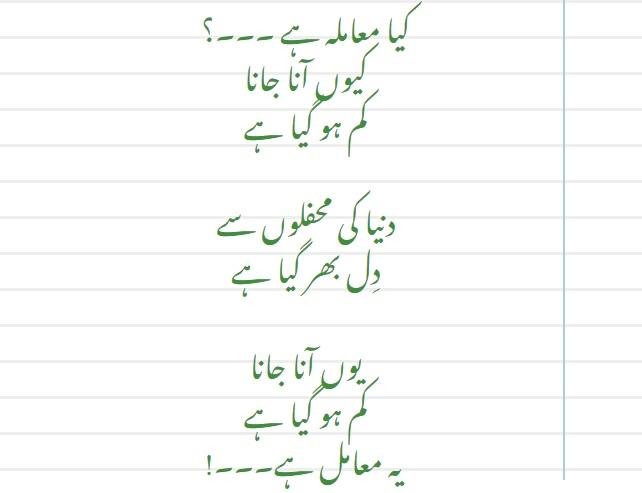 کیا معاملہ ہے ---؟
کیوں آنا جانا
کم ہو گیا ہے
دنیا کی محفلوں سے
دِل بھر گیا ہے
یوں آنا جانا
کم ہو گیا ہے
یہ معامل ہے---!